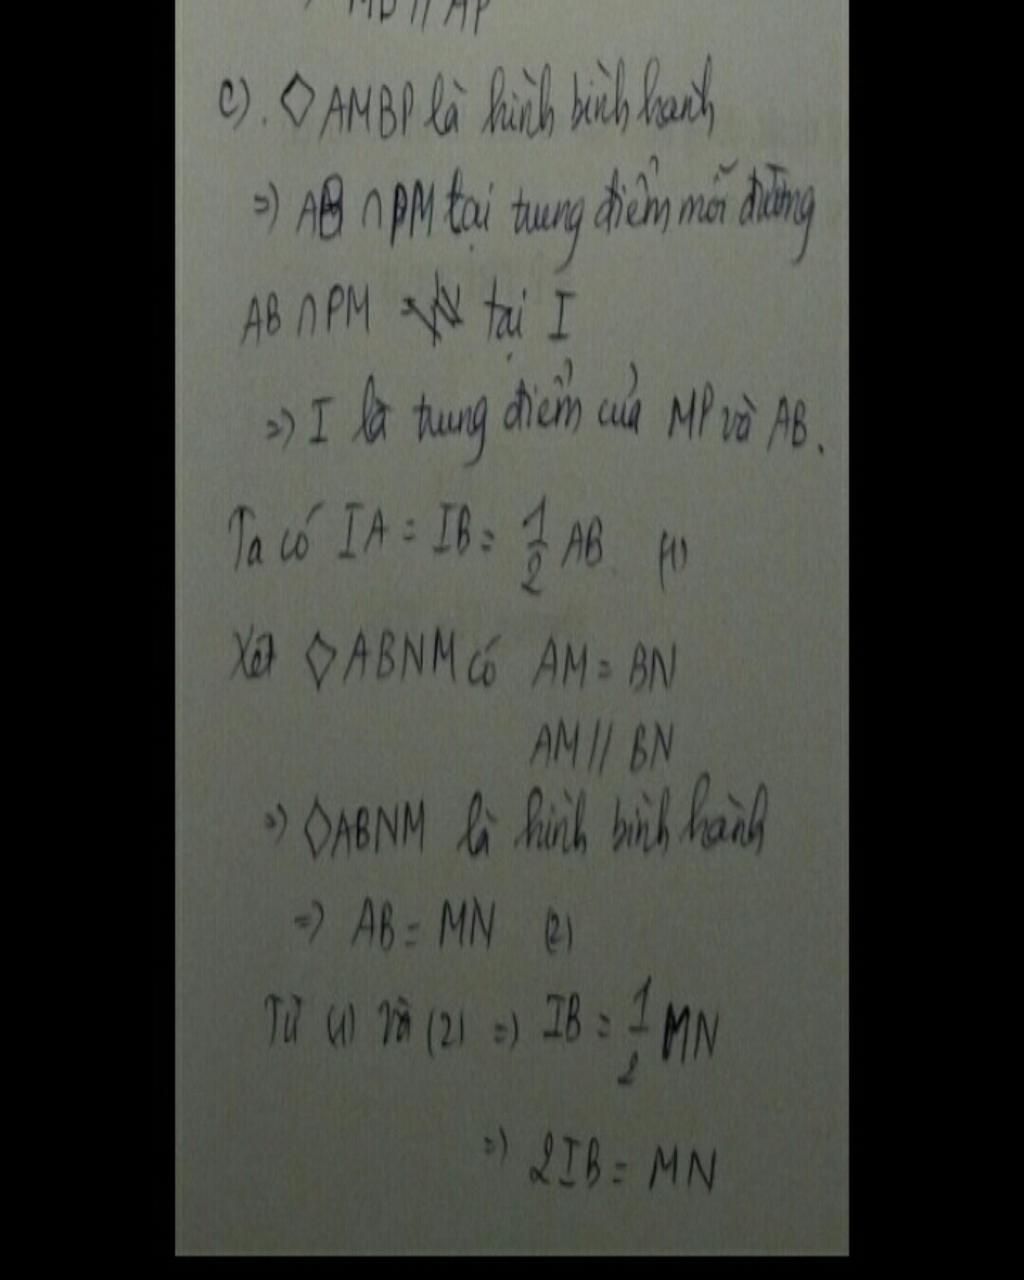 MB // AP
c). ◇AMBP là hình bình hành
=) AB ∩ PM tại trung điểm mỗi đường
AB ∩ PM tại I
=) I là trung điểm của MP và AB.
Ta có IA = IB = 1/2 AB (1)
Xét ◇ABNM có AM = BN
AM // BN
=) ◇ABNM là hình bình hành
=) AB = MN (2)
Từ (1) và (2) =) IB = 1/2 MN
=) 2IB = MN